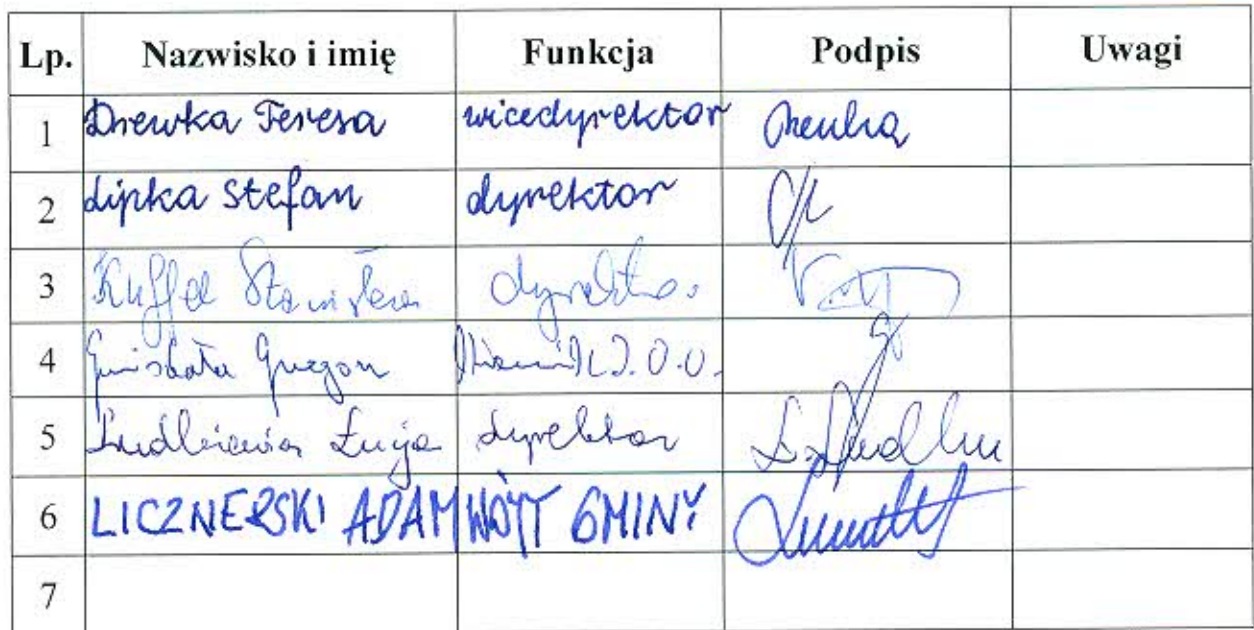 Lp. Nazwisko i imię Funkcja Podpis Uwagi
1 Drewka Teresa wicedyrektor
2 Lipka Stefan dyrektor
3 Kuffel Stanisław dyrektor
4 J.O.O.
5 Łucja dyrektor
6 LICZNERSKI ADAM WÓJT GMINY
7